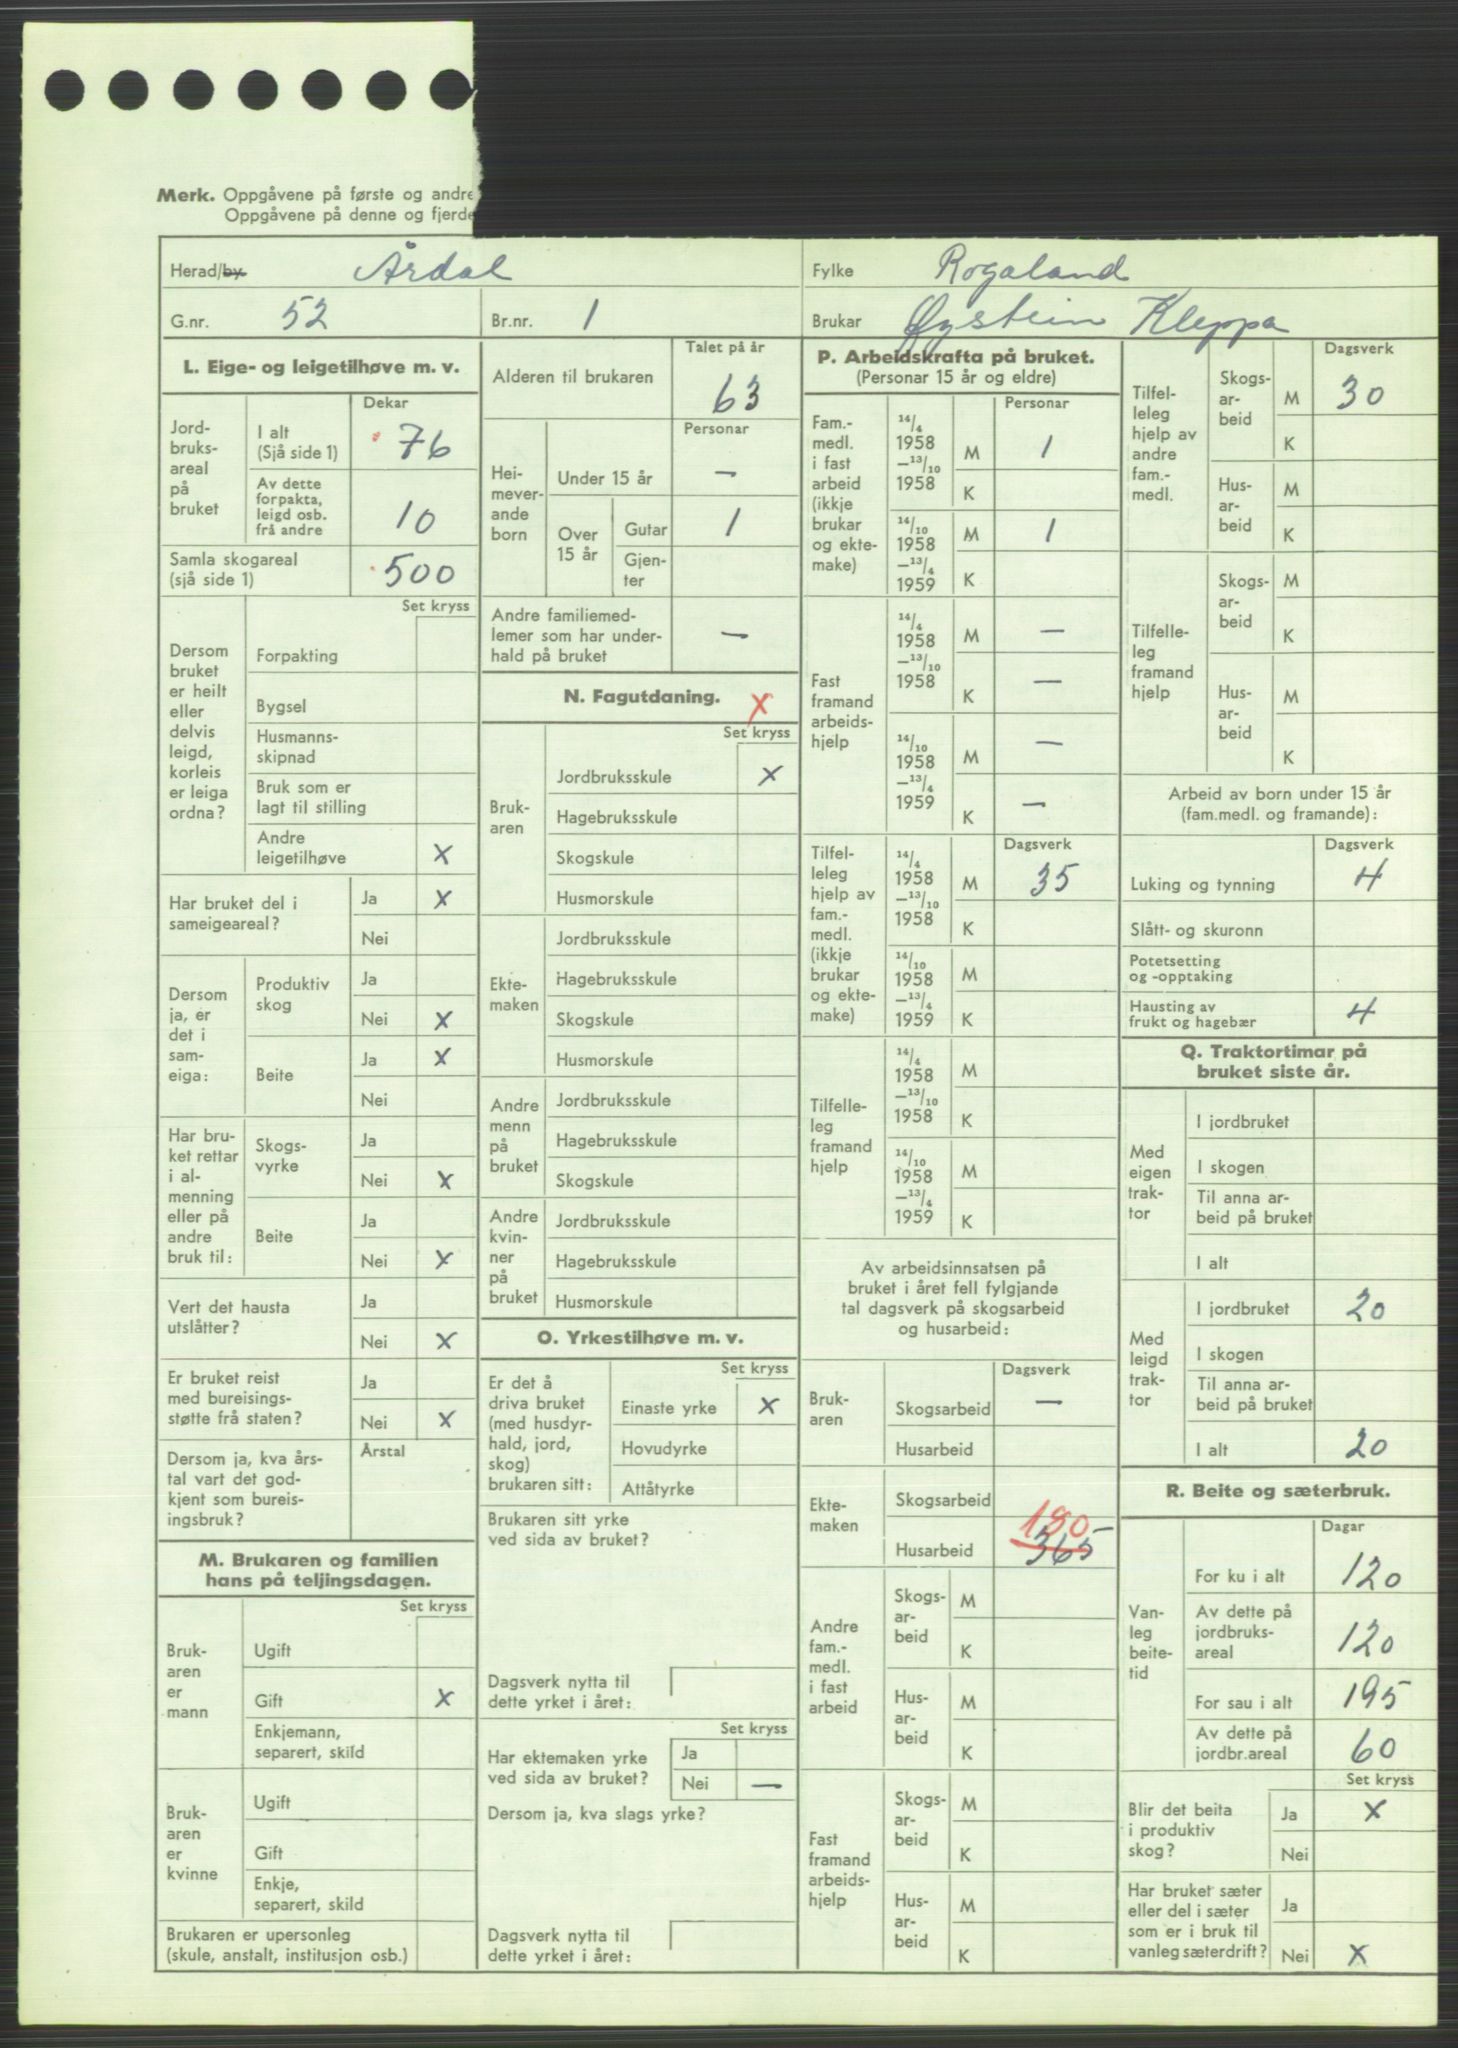 Merk. Oppgåvene på første og andre
Oppgåvene på denne og fjerde
Herad/by. Årdal
Fylke Rogaland
G.nr. 52
Br.nr. 1
Brukar Øystein Kleppa
L. Eige- og leigetilhøve m. v.
Dekar
Jord-
bruks-
areal
på
bruket
I alt
(Sjå side 1) 76
Av dette
forpakta,
leigd osb.
frå andre 10
Samla skogareal
(sjå side 1) 500
Set kryss
Dersom
bruket
er heilt
eller
delvis
leigd,
korleis
er leiga
ordna?
Forpakting
Bygsel
Husmanns-
skipnad
Bruk som er
lagt til stilling
Andre
leigetilhøve X
Har bruket del i
sameigeareal?
Ja X
Nei
Dersom
ja, er
det i
sam-
eiga:
Produktiv
skog
Ja
Nei X
Beite
Ja X
Nei
Har bru-
ket rettar
i al-
menning
eller på
andre
bruk til:
Skogs-
vyrke
Ja
Nei X
Beite
Ja
Nei X
Vert det hausta
utslåtter?
Ja
Nei X
Er bruket reist
med bureisings-
støtte frå staten?
Ja
Nei X
Dersom ja, kva års-
tal vart det god-
kjent som bureis-
ingsbruk?
Årstal
M. Brukaren og familien
hans på teljingsdagen.
Set kryss
Bruk-
aren
er
mann
Ugift
Gift X
Enkjemann,
separert, skild
Bruk-
aren
er
kvinne
Ugift
Gift
Enkje,
separert, skild
Brukaren er upersonleg
(skule, anstalt, institusjon osb.)
Talet på år
Alderen til brukaren 63
Personar
Hei-
mever-
ande
born
Under 15 år –
Over
15 år
Gutar 1
Gjen-
ter
Andre familiemed-
lemer som har under-
hald på bruket –
N. Fagutdaning. X
Set kryss
Bruk-
aren
Jordbruksskule X
Hagebruksskule
Skogskule
Husmorskule
Ekte-
maken
Jordbruksskule
Hagebruksskule
Skogskule
Husmorskule
Andre
menn
på
bruket
Jordbruksskule
Hagebruksskule
Skogskule
Andre
kvin-
ner
på
bruket
Jordbruksskule
Hagebruksskule
Husmorskule
O. Yrkestilhøve m. v.
Set kryss
Er det å
driva bruket
(med husdyr-
hald, jord,
skog)
brukaren sitt:
Einaste yrke X
Hovudyrke
Attåtyrke
Brukaren sitt yrke
ved sida av bruket?
Dagsverk nytta til
dette yrket i året:
Set kryss
Har ektemaken yrke
ved sida av bruket?
Ja
Nei –
Dersom ja, kva slags yrke?
Dagsverk nytta til
dette yrket i året:
P. Arbeidskrafta på bruket.
(Personar 15 år og eldre)
Personar
Fam.-
medl.
i fast
arbeid
(ikkje
brukar
og ekte-
make)
14/4
1958
–13/10
1958
M 1
K
14/10
1958
–13/4
1959
M 1
K
Fast
framand
arbeids-
hjelp
14/4
1958
–13/10
1958
M –
K –
14/10
1958
–13/4
1959
M –
K –
Dagsverk
Tilfel-
leleg
hjelp av
fam.-
medl.
(ikkje
brukar
og ekte-
make)
14/4
1958
–13/10
1958
M 35
K
14/10
1958
–13/4
1959
M
K
Tilfelle-
leg
framand
hjelp
14/4
1958
–13/10
1958
M
K
14/10
1958
–13/4
1959
M
K
Av arbeidsinnsatsen på
bruket i året fell fylgjande
tal dagsverk på skogsarbeid
og husarbeid:
Dagsverk
Bruk-
aren
Skogsarbeid –
Husarbeid
Ekte-
maken
Skogsarbeid
180
Husarbeid 365
Andre
fam.-
medl.
i fast
arbeid
Skogs-
ar-
beid
M
K
Hus-
ar-
beid
M
K
Fast
framand
arbeids-
hjelp
Skogs-
ar-
beid
M
K
Hus-
ar-
beid
M
K
Dagsverk
Tilfel-
leleg
hjelp av
andre
fam.-
medl.
Skogs-
ar-
beid
M 30
K
Hus-
ar-
beid
M
K
Tilfelle-
leg
framand
hjelp
Skogs-
ar-
beid
M
K
Hus-
ar-
beid
M
K
Arbeid av born under 15 år
(fam.medl. og framande):
Dagsverk
Luking og tynning 4
Slått- og skuronn
Potetsetting
og -opptaking
Hausting av
frukt og hagebær 4
Q. Traktortimar på
bruket siste år.
Med
eigen
trak-
tor
I jordbruket
I skogen
Til anna ar-
beid på bruket
I alt
Med
leigd
trak-
tor
I jordbruket 20
I skogen
Til anna ar-
beid på bruket
I alt 20
R. Beite og sæterbruk.
Dagar
Van-
leg
beite-
tid
For ku i alt 120
Av dette på
jordbruks-
areal 120
For sau i alt 195
Av dette på
jordbr.areal 60
Set kryss
Blir det beita
i produktiv
skog?
Ja X
Nei
Har bruket sæter
eller del i sæter
som er i bruk til
vanleg sæterdrift?
Ja
Nei X